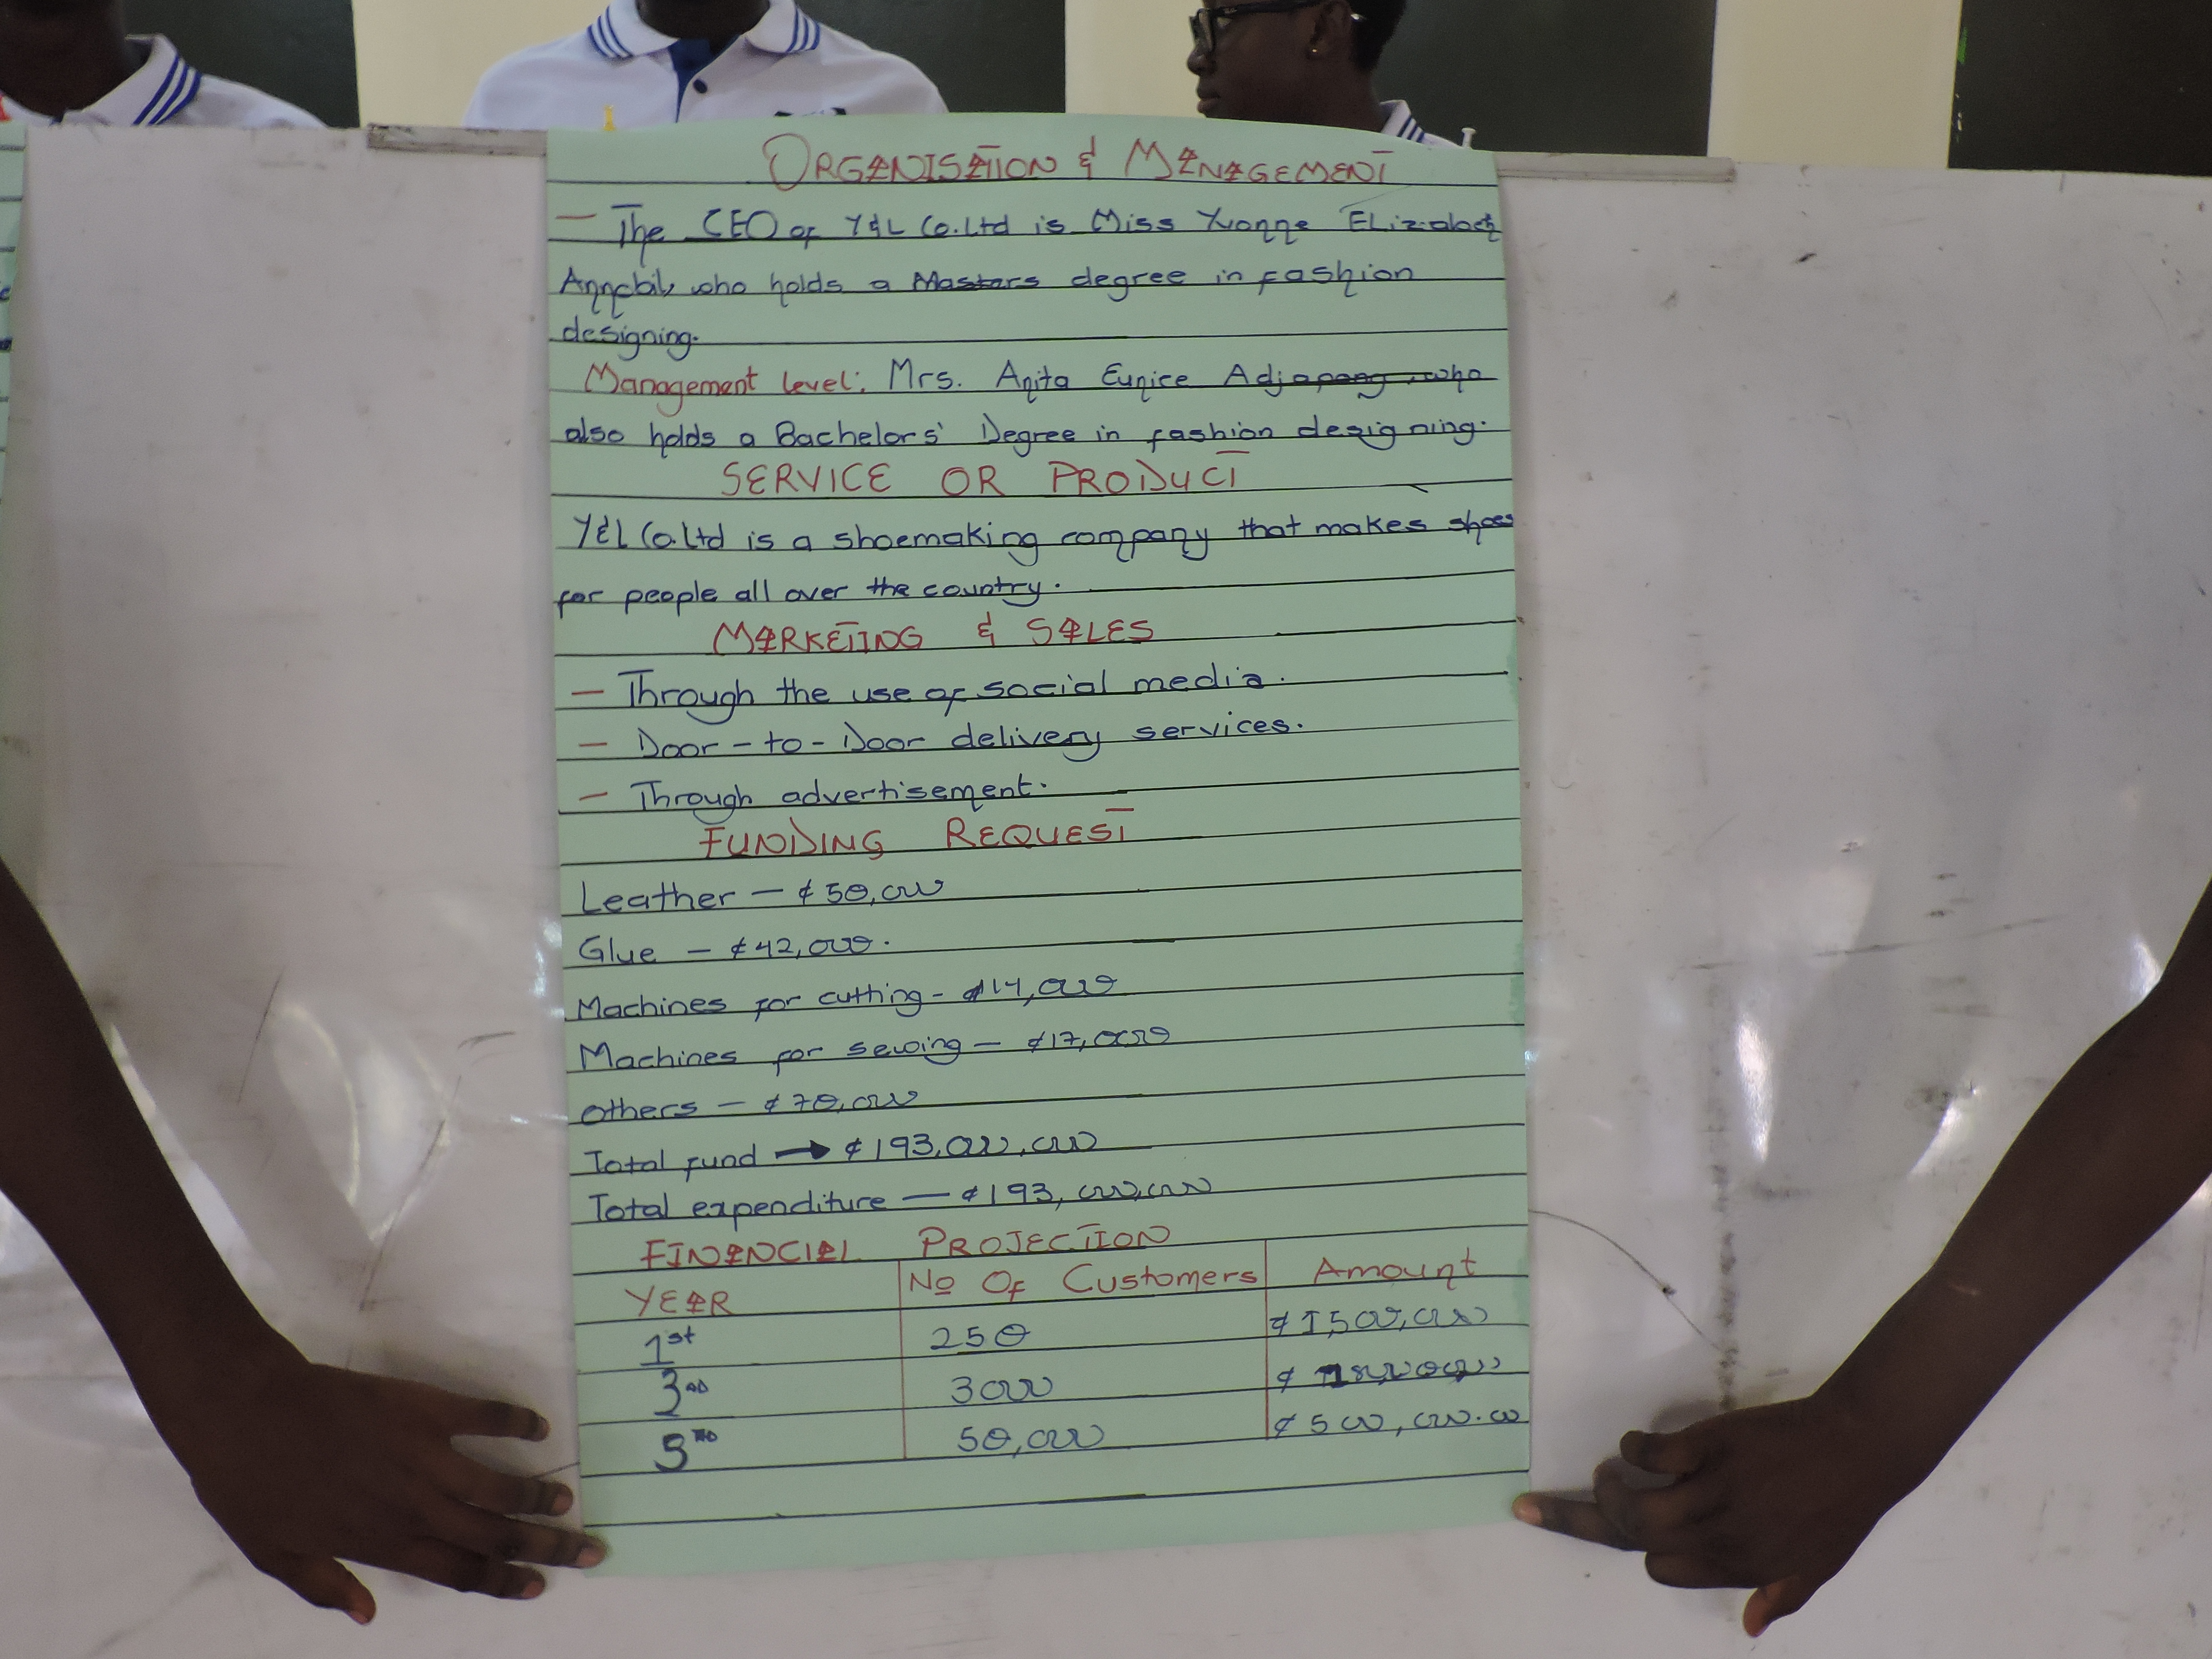 ORGANISATION & MANAGEMENT
— The CEO of Y&L Co.Ltd is Miss Yvonne ELizabeth
who holds a Masters degree in fashion
designing.
Management level: Mrs. Anita Eunice Adjapong, who
also holds a Bachelors' Degree in fashion designing.
SERVICE OR PRODUCT
Y&L Co.Ltd is a shoemaking company that makes shoes
for people all over the country.
MARKETING & SALES
— Through the use of social media.
— Door-to-Door delivery services.
— Through advertisement.
FUNDING REQUEST
Leather — ¢50,000
Glue — ¢42,000.
Machines for cutting - ¢14,000
Machines for sewing — ¢17,000
others — ¢70,000
Total fund → ¢193,000,000
Total expenditure — ¢193,000,000
FINANCIAL PROJECTION
YEAR No Of Customers Amount
1st 250 ¢1,500,000
3RD 3000 ¢
5TH 50,000 ¢500,000.00